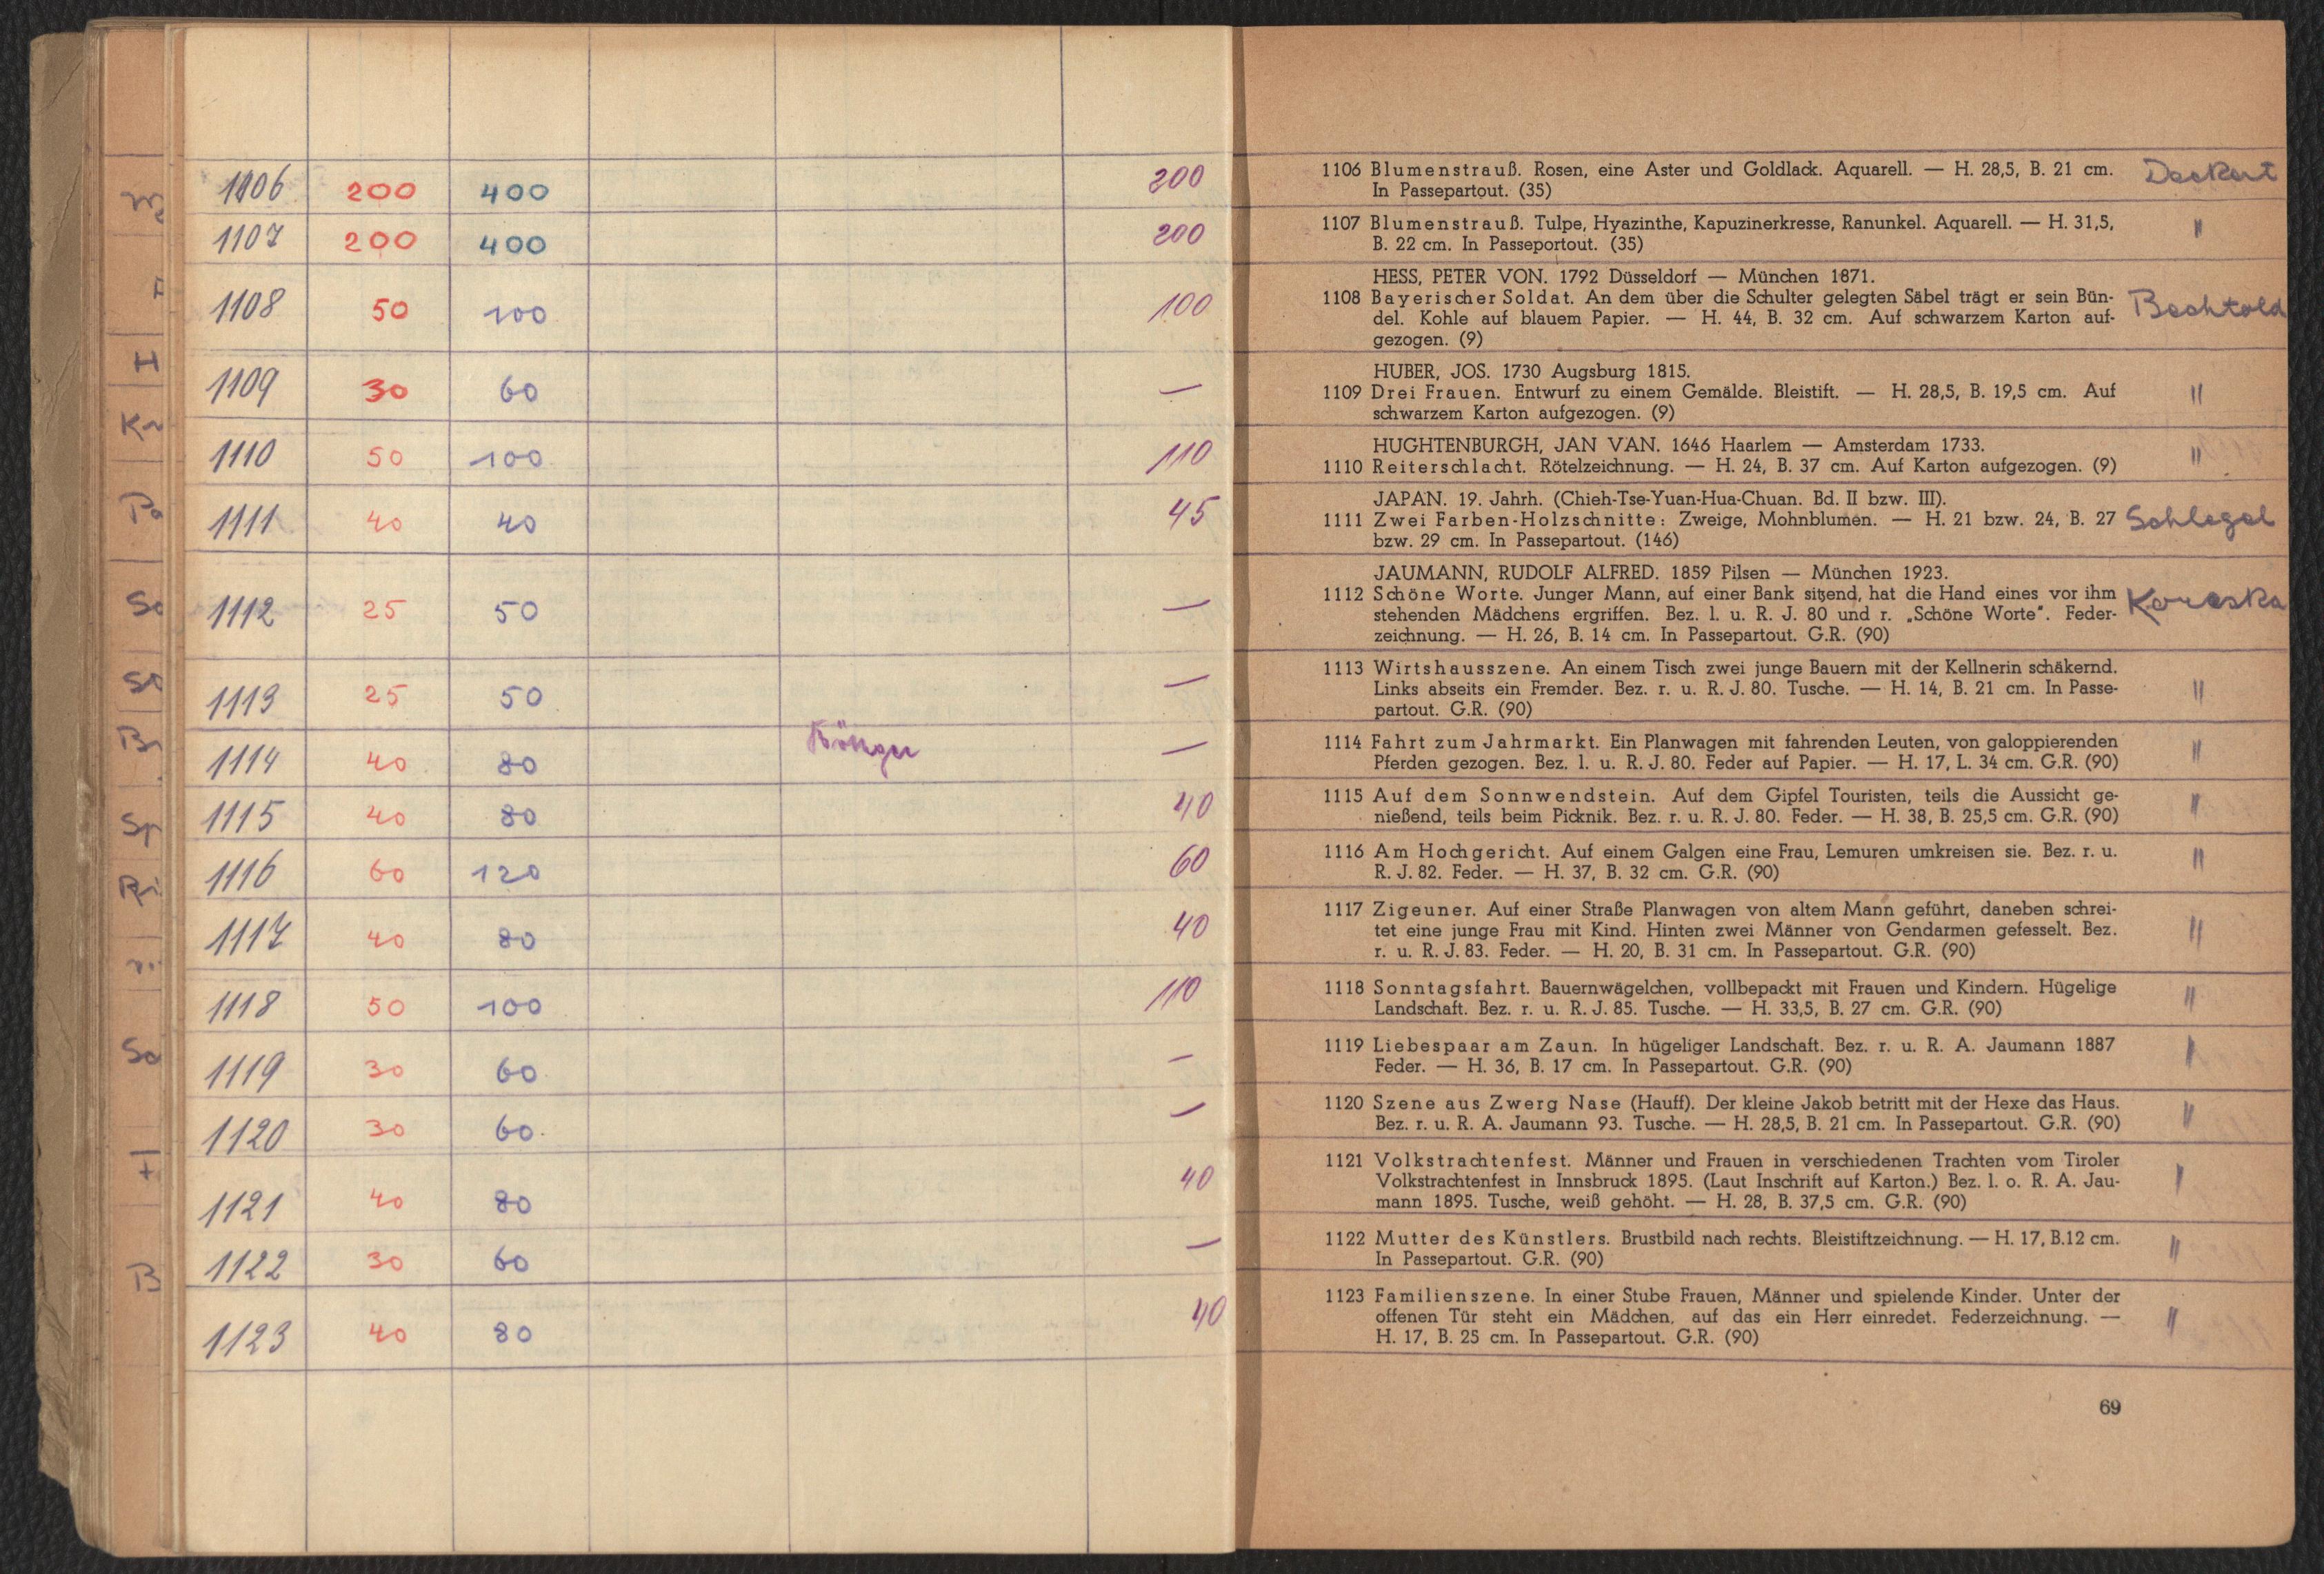 1106 200 400 200
1107 200 400 200
1108 50 100 100
1109 30 60 —
1110 50 100 110
1111 40 40 45
1112 25 50 —
1113 25 50 —
1114 40 80 —
1115 40 80 40
1116 60 120 60
1117 40 80 40
1118 50 100 110
1119 30 60 —
1120 30 60 —
1121 40 80 40
1122 30 60 —
1123 40 80 40
1106 Blumenstrauß. Rosen, eine Aster und Goldlack. Aquarell. — H. 28,5, B. 21 cm. Deckert
In Passepartout. (35)
1107 Blumenstrauß. Tulpe, Hyazinthe, Kapuzinerkresse, Ranunkel. Aquarell. — H. 31,5, "
B. 22 cm. In Passeportout. (35)
HESS, PETER VON. 1792 Düsseldorf — München 1871.
1108 Bayerischer Soldat. An dem über die Schulter gelegten Säbel trägt er sein Bün- Bechtold
del. Kohle auf blauem Papier. — H. 44, B. 32 cm. Auf schwarzem Karton auf-
gezogen. (9)
HUBER, JOS. 1730 Augsburg 1815.
1109 Drei Frauen. Entwurf zu einem Gemälde. Bleistift. — H. 28,5, B. 19,5 cm. Auf "
schwarzem Karton aufgezogen. (9)
HUGHTENBURGH, JAN VAN. 1646 Haarlem — Amsterdam 1733.
1110 Reiterschlacht. Rötelzeichnung. — H. 24, B. 37 cm. Auf Karton aufgezogen. (9) "
JAPAN. 19. Jahrh. (Chieh-Tse-Yuan-Hua-Chuan. Bd. II bzw. III).
1111 Zwei Farben-Holzschnitte: Zweige, Mohnblumen. — H. 21 bzw. 24, B. 27 Schlegel
bzw. 29 cm. In Passepartout. (146)
JAUMANN, RUDOLF ALFRED. 1859 Pilsen — München 1923.
1112 Schöne Worte. Junger Mann, auf einer Bank sitzend, hat die Hand eines vor ihm
stehenden Mädchens ergriffen. Bez. l. u. R. J. 80 und r. „Schöne Worte". Feder-
zeichnung. — H. 26, B. 14 cm. In Passepartout. G.R. (90)
1113 Wirtshausszene. An einem Tisch zwei junge Bauern mit der Kellnerin schäkernd.
Links abseits ein Fremder. Bez. r. u. R. J. 80. Tusche. — H. 14, B. 21 cm. In Passe- "
partout. G.R. (90)
1114 Fahrt zum Jahrmarkt. Ein Planwagen mit fahrenden Leuten, von galoppierenden "
Pferden gezogen. Bez. l. u. R. J. 80. Feder auf Papier. — H. 17, L. 34 cm. G.R. (90)
1115 Auf dem Sonnwendstein. Auf dem Gipfel Touristen, teils die Aussicht ge- "
nießend, teils beim Picknik. Bez. r. u. R. J. 80. Feder. — H. 38, B. 25,5 cm. G.R. (90)
1116 Am Hochgericht. Auf einem Galgen eine Frau, Lemuren umkreisen sie. Bez. r. u. "
R. J. 82. Feder. — H. 37, B. 32 cm. G.R. (90)
1117 Zigeuner. Auf einer Straße Planwagen von altem Mann geführt, daneben schrei-
tet eine junge Frau mit Kind. Hinten zwei Männer von Gendarmen gefesselt. Bez. "
r. u. R. J. 83. Feder. — H. 20, B. 31 cm. In Passepartout. G.R. (90)
1118 Sonntagsfahrt. Bauernwägelchen, vollbepackt mit Frauen und Kindern. Hügelige "
Landschaft. Bez. r. u. R. J. 85. Tusche. — H. 33,5, B. 27 cm. G.R. (90)
1119 Liebespaar am Zaun. In hügeliger Landschaft. Bez. r. u. R. A. Jaumann 1887 "
Feder. — H. 36, B. 17 cm. In Passepartout. G.R. (90)
1120 Szene aus Zwerg Nase (Hauff). Der kleine Jakob betritt mit der Hexe das Haus. "
Bez. r. u. R. A. Jaumann 93. Tusche. — H. 28,5, B. 21 cm. In Passepartout. G.R. (90)
1121 Volkstrachtenfest. Männer und Frauen in verschiedenen Trachten vom Tiroler
Volkstrachtenfest in Innsbruck 1895. (Laut Inschrift auf Karton.) Bez. l. o. R. A. Jau- "
mann 1895. Tusche, weiß gehöht. — H. 28, B. 37,5 cm. G.R. (90)
1122 Mutter des Künstlers. Brustbild nach rechts. Bleistiftzeichnung. — H. 17, B.12 cm. "
In Passepartout. G.R. (90)
1123 Familienszene. In einer Stube Frauen, Männer und spielende Kinder. Unter der
offenen Tür steht ein Mädchen, auf das ein Herr einredet. Federzeichnung. — "
H. 17, B. 25 cm. In Passepartout. G.R. (90)
69